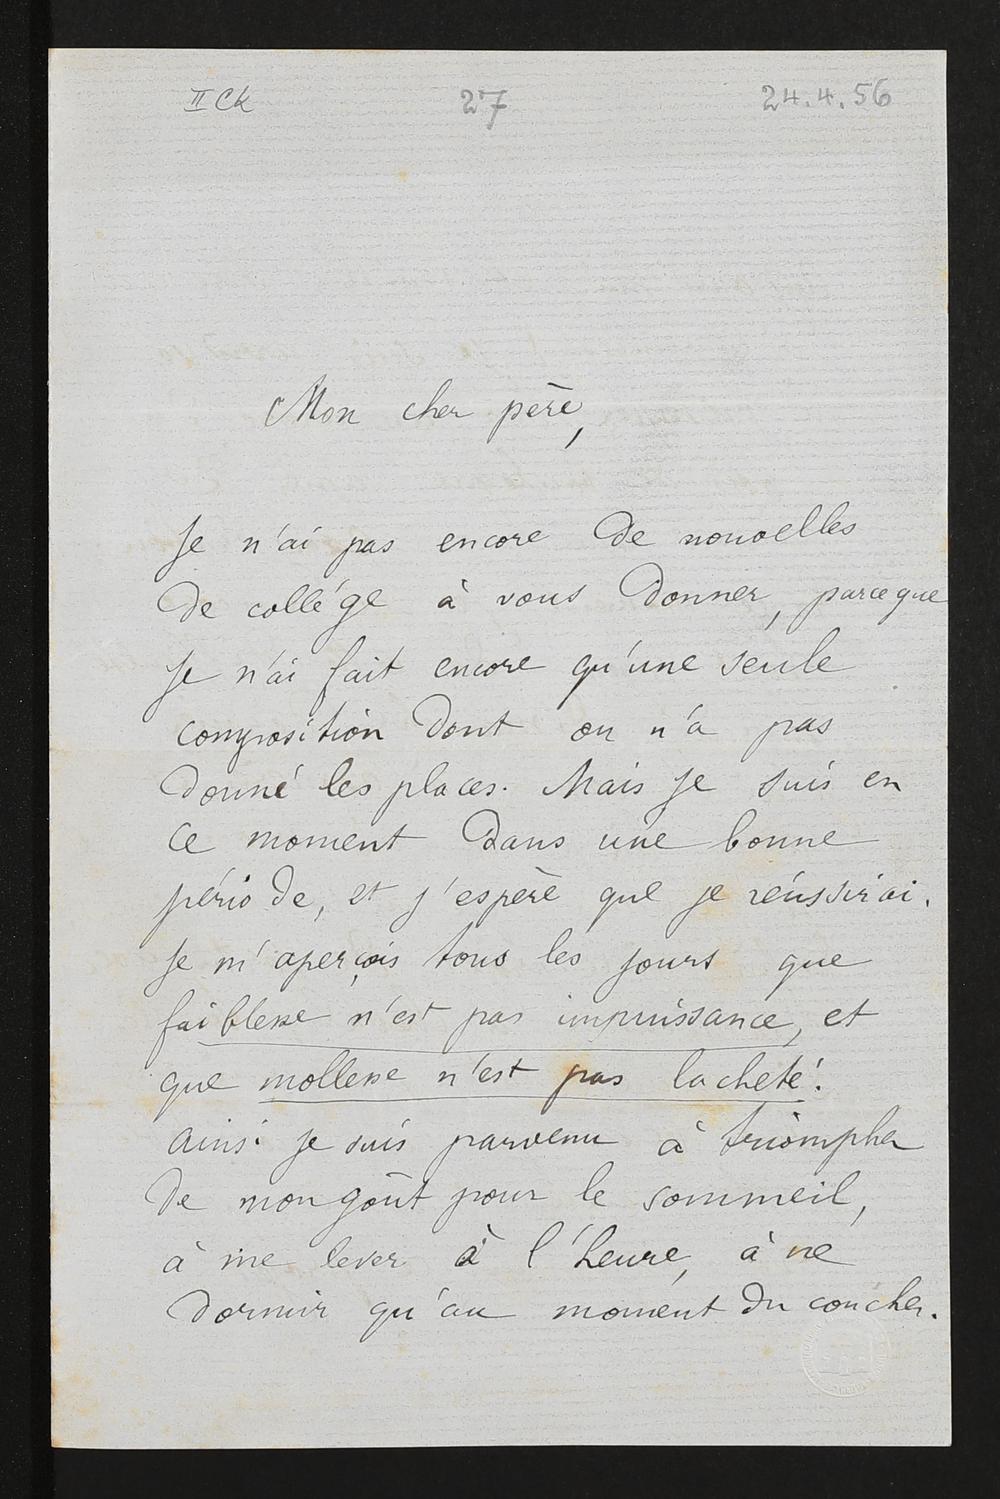 II CK 27 24.4.56
Mon cher père,
Je n'ai pas encore de nouvelles
de collége à vous donner, parceque
Je n'ai fait encore qu'une seule
composition dont on n'a pas
donné les places. Mais je suis en
ce moment dans une bonne
période, et j'espère que je réussirai.
Je m'aperçois tous les jours que
faiblesse n'est pas impuissance, et
que mollesse n'est pas lacheté.
Ainsi je suis parvenu à triompher
de mon goût pour le sommeil,
à me lever à l'heure, à ne
dormir qu'au moment du coucher.